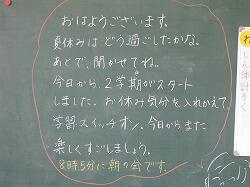 おはようございます。
夏休みは どう過ごしたかな。
あとで、聞かせてね。
今日から、2学期がスタート
しました。お休み気分を入れかえて、
学習スイッチオン。今日からまた
楽しくすごしましょう。
8時5分に朝の会です。
しん体計そく